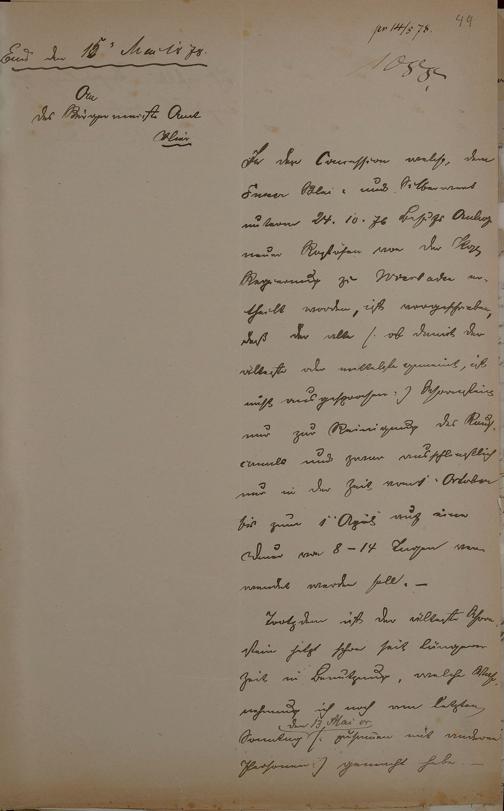 49
pr 14/5 78.
1088.
Ems den 13 Mai 1878.
An
das Bürgermeister Amt
hier
In der Concession welche, dem
Emser Blei- und Silberwerk
unterm 24. 10. 76 behufs Anlage
neuer Röstöfen von der Kgl.
Regierung zu Wiesbaden er-
theilt worden, ist vorgeschrieben,
daß der alte (: ob damit der
älteste oder mittelste gemeint, ist
nicht ausgesprochen :) Schornstein
nur zur Reinigung des Rauch-
canals und zwar ausschließlich
nur in der Zeit vom 1 October
bis zum 1 April auf eine
Dauer von 8-14 Tagen ver-
wendet werden soll. -
Trotzdem ist der älteste Schorn-
stein jetzt schon seit längerer
Zeit in Benutzung, welche Wahr-
nehmung ich noch am letzten
den 13 Mai cr.
Sonntag (: zusammen mit anderen
Personen :) gemacht habe. -